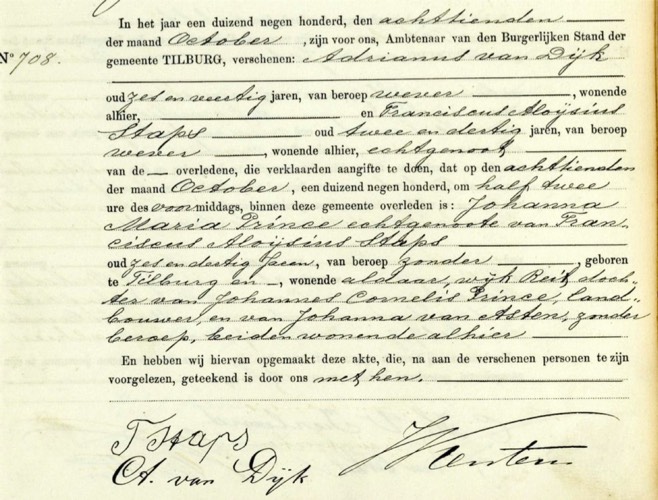 In het jaar een duizend negen honderd, den achttienden
der maand October, zijn voor ons, Ambtenaar van den Burgerlijken Stand der
No 708. gemeente TILBURG, verschenen: Adrianus van Dijk
oud zes en veertig jaren, van beroep wever, wonende
alhier, en Franciscus Aloÿsius
Staps oud twee en dertig jaren, van beroep
wever, wonende alhier, echtgenoot
van de overledene, die verklaarden aangifte te doen, dat op den achttienden
der maand October, een duizend negen honderd, om half twee
ure des voormiddags, binnen deze gemeente overleden is: Johanna
Maria Prince echtgenoote van Fran-
ciscus Aloÿsius Staps
oud zes en dertig jaren, van beroep zonder, geboren
te Tilburg en, wonende aldaar, wijk Reit, doch-
ter van Johannes Cornelis Prince, land-
bouwer, en van Johanna van Asten, zonder
beroep, beiden wonende alhier
En hebben wij hiervan opgemaakt deze akte, die, na aan de verschenen personen te zijn
voorgelezen, geteekend is door ons met hen.
F Staps
A. van Dijk